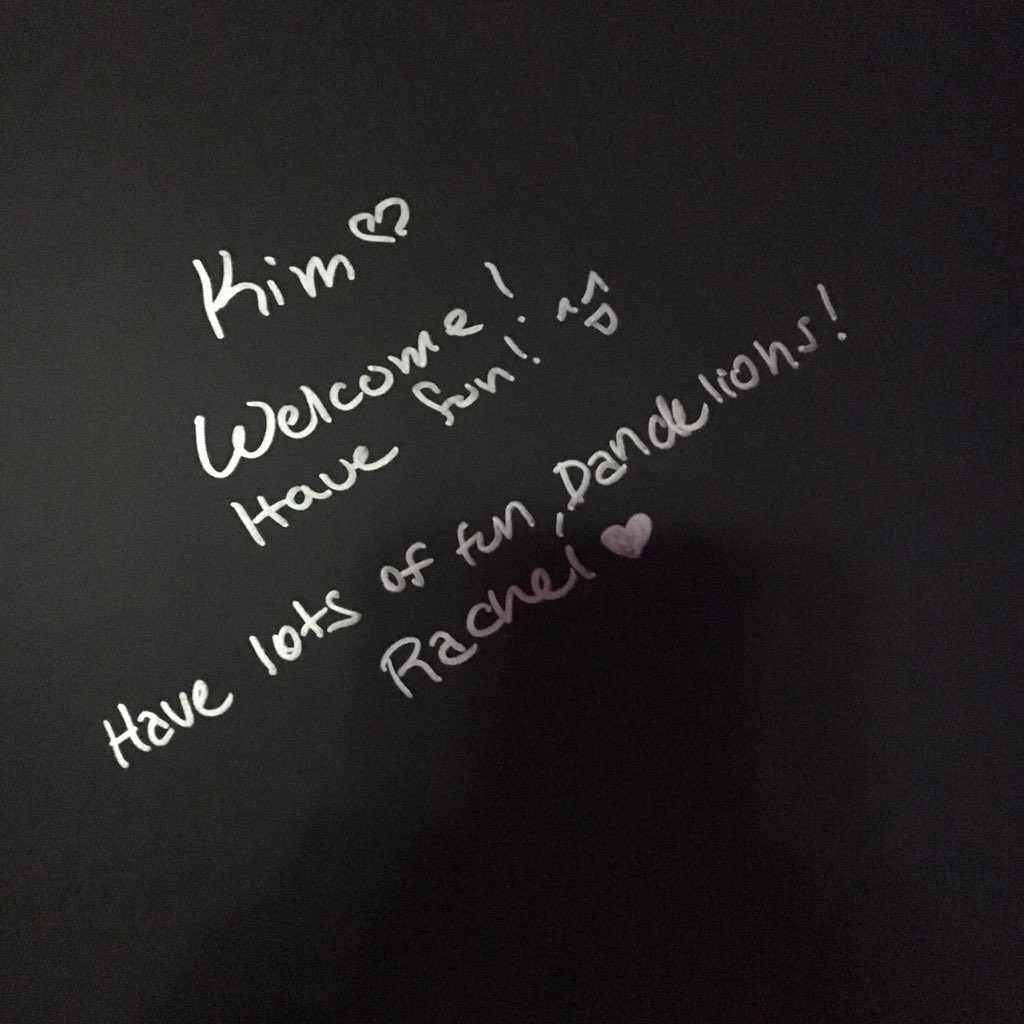 Kim ♡
Welcome!
Have fun! ^^D
Have lots of fun, Dandelions!
Rachel ♥